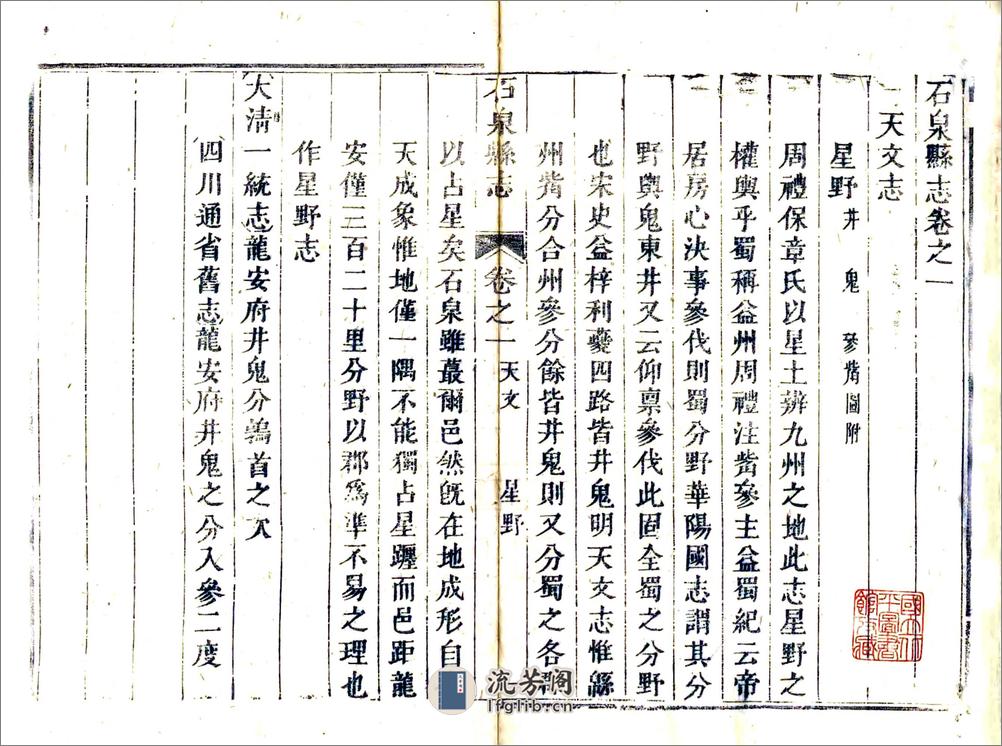 石泉縣志卷之一
天文志
星野 井 鬼 參觜圖附
周禮保章氏以星土辨九州之地此志星野之
權輿乎蜀稱益州周禮注觜參主益蜀紀云帝
居房心決事參伐則蜀分野華陽國志謂其分
野輿鬼東井又云仰禀參伐此固全蜀之分野
也宋史益梓利夔四路皆井鬼明天文志惟緜
州觜分合州參分餘皆井鬼則又分蜀之各郡
石泉縣志 卷之一 天文 星野
以占星矣石泉雖蕞爾邑然旣在地成形自
天成象惟地僅一隅不能獨占星躔而邑距龍
安僅三百二十里分野以郡爲準不易之理也
作星野志
大清一統志龍安府井鬼分鶉首之次
四川通省舊志龍安府井鬼之分入參二度
流芳阁
lfglib.cn